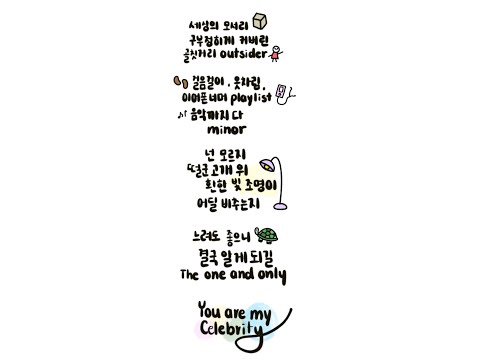 세상의 모서리
구부정하게 커버린
골칫거리 outsider
걸음걸이, 옷차림,
이어폰 너머 playlist
음악까지 다
minor
넌 모르지
떨군 고개 위
환한 빛 조명이
어딜 비추는지
느려도 좋으니
결국 알게 되길
The one and only
You are my
Celebrity